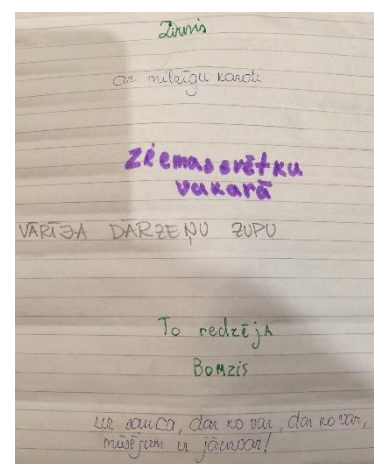 Zirnis
ar milzīgu karoti
Ziemassvētku
vakarā
VĀRĪJA DĀRZEŅU ZUPU
To redzēja
Bomzis
un sauca, dar ko var, dar ko var,
mūsējam ir jāuzvar!